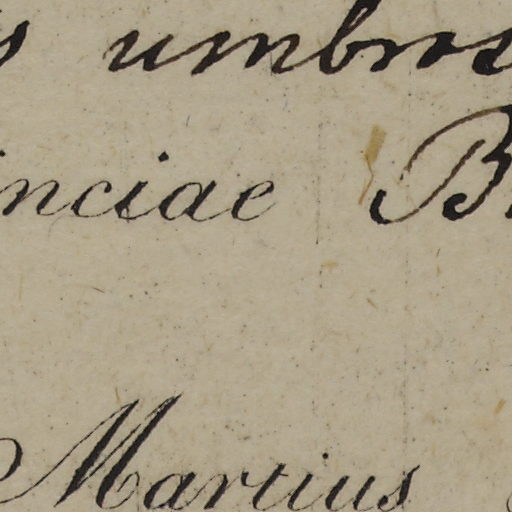 umbros
inciae B
Martius